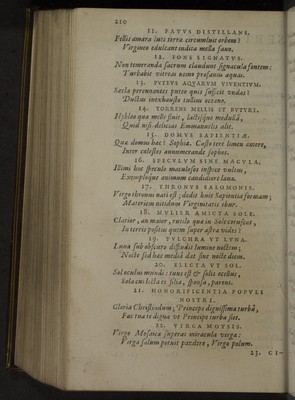 210
11. FAVVS DISTILLANS.
Fellis amara lues terræ circumluit orbem?
Virgineo edulcant indica mella favo.
12. FONS SIGNATVS.
Non temeranda sacrum claudunt signacula fontem:
Turbabit vitreas nemo profanus aquas.
13. PVTEVS AQVARVM VIVENTIVM.
Sæcla perennantes puteo quis sufficit undas?
Ductus inexhausto tullius oceano.
14. TORRENS MELLIS ET BVTYRI.
Hyblæa quæ melle fluit, lactisque medulla,
Quid nisi delicias Emmanuelis alit.
15. DOMVS SAPIENTIÆ.
Quæ domus hæc? Sophiæ. Casto teret limen
Inter cælestes annumerande sophos.
16. SPECVLVM SINE MACVLA.
Illimi hoc speculo maculosos inspice vultus,
Exemploque animum candidiore lava.
17. THRONVS SALOMONIS.
Virgo thronus nati est; dedit huic Sapientia formam;
Materiem nitidum Virginitatis ebur.
18. MVLIER AMICTA SOLE.
Clarior, an maior, rutila quæ in Sole coruscet,
In terris positus quem super astra vides?
19. PVLCHRA VT LVNA.
Luna sub obscuro diffundit lumine noctem;
Nocte sed hæc media dat sine nocte diem.
20. ELECTA VT SOL.
Sol oculus mundi: tuus est & solis ocellus,
Sola es lecta filia, sponsa, parens.
21. HONORIFICENTIA POPVLI
NOSTRI.
Gloria Christicolum; Princeps dignissima turba,
Fac tua te digna vt Principe turba siet.
22. VIRGA MOYSIS.
Virgo Mosaica superas miracula virga:
Virga salum potuit pandere, Virgo polum.
23. CI-